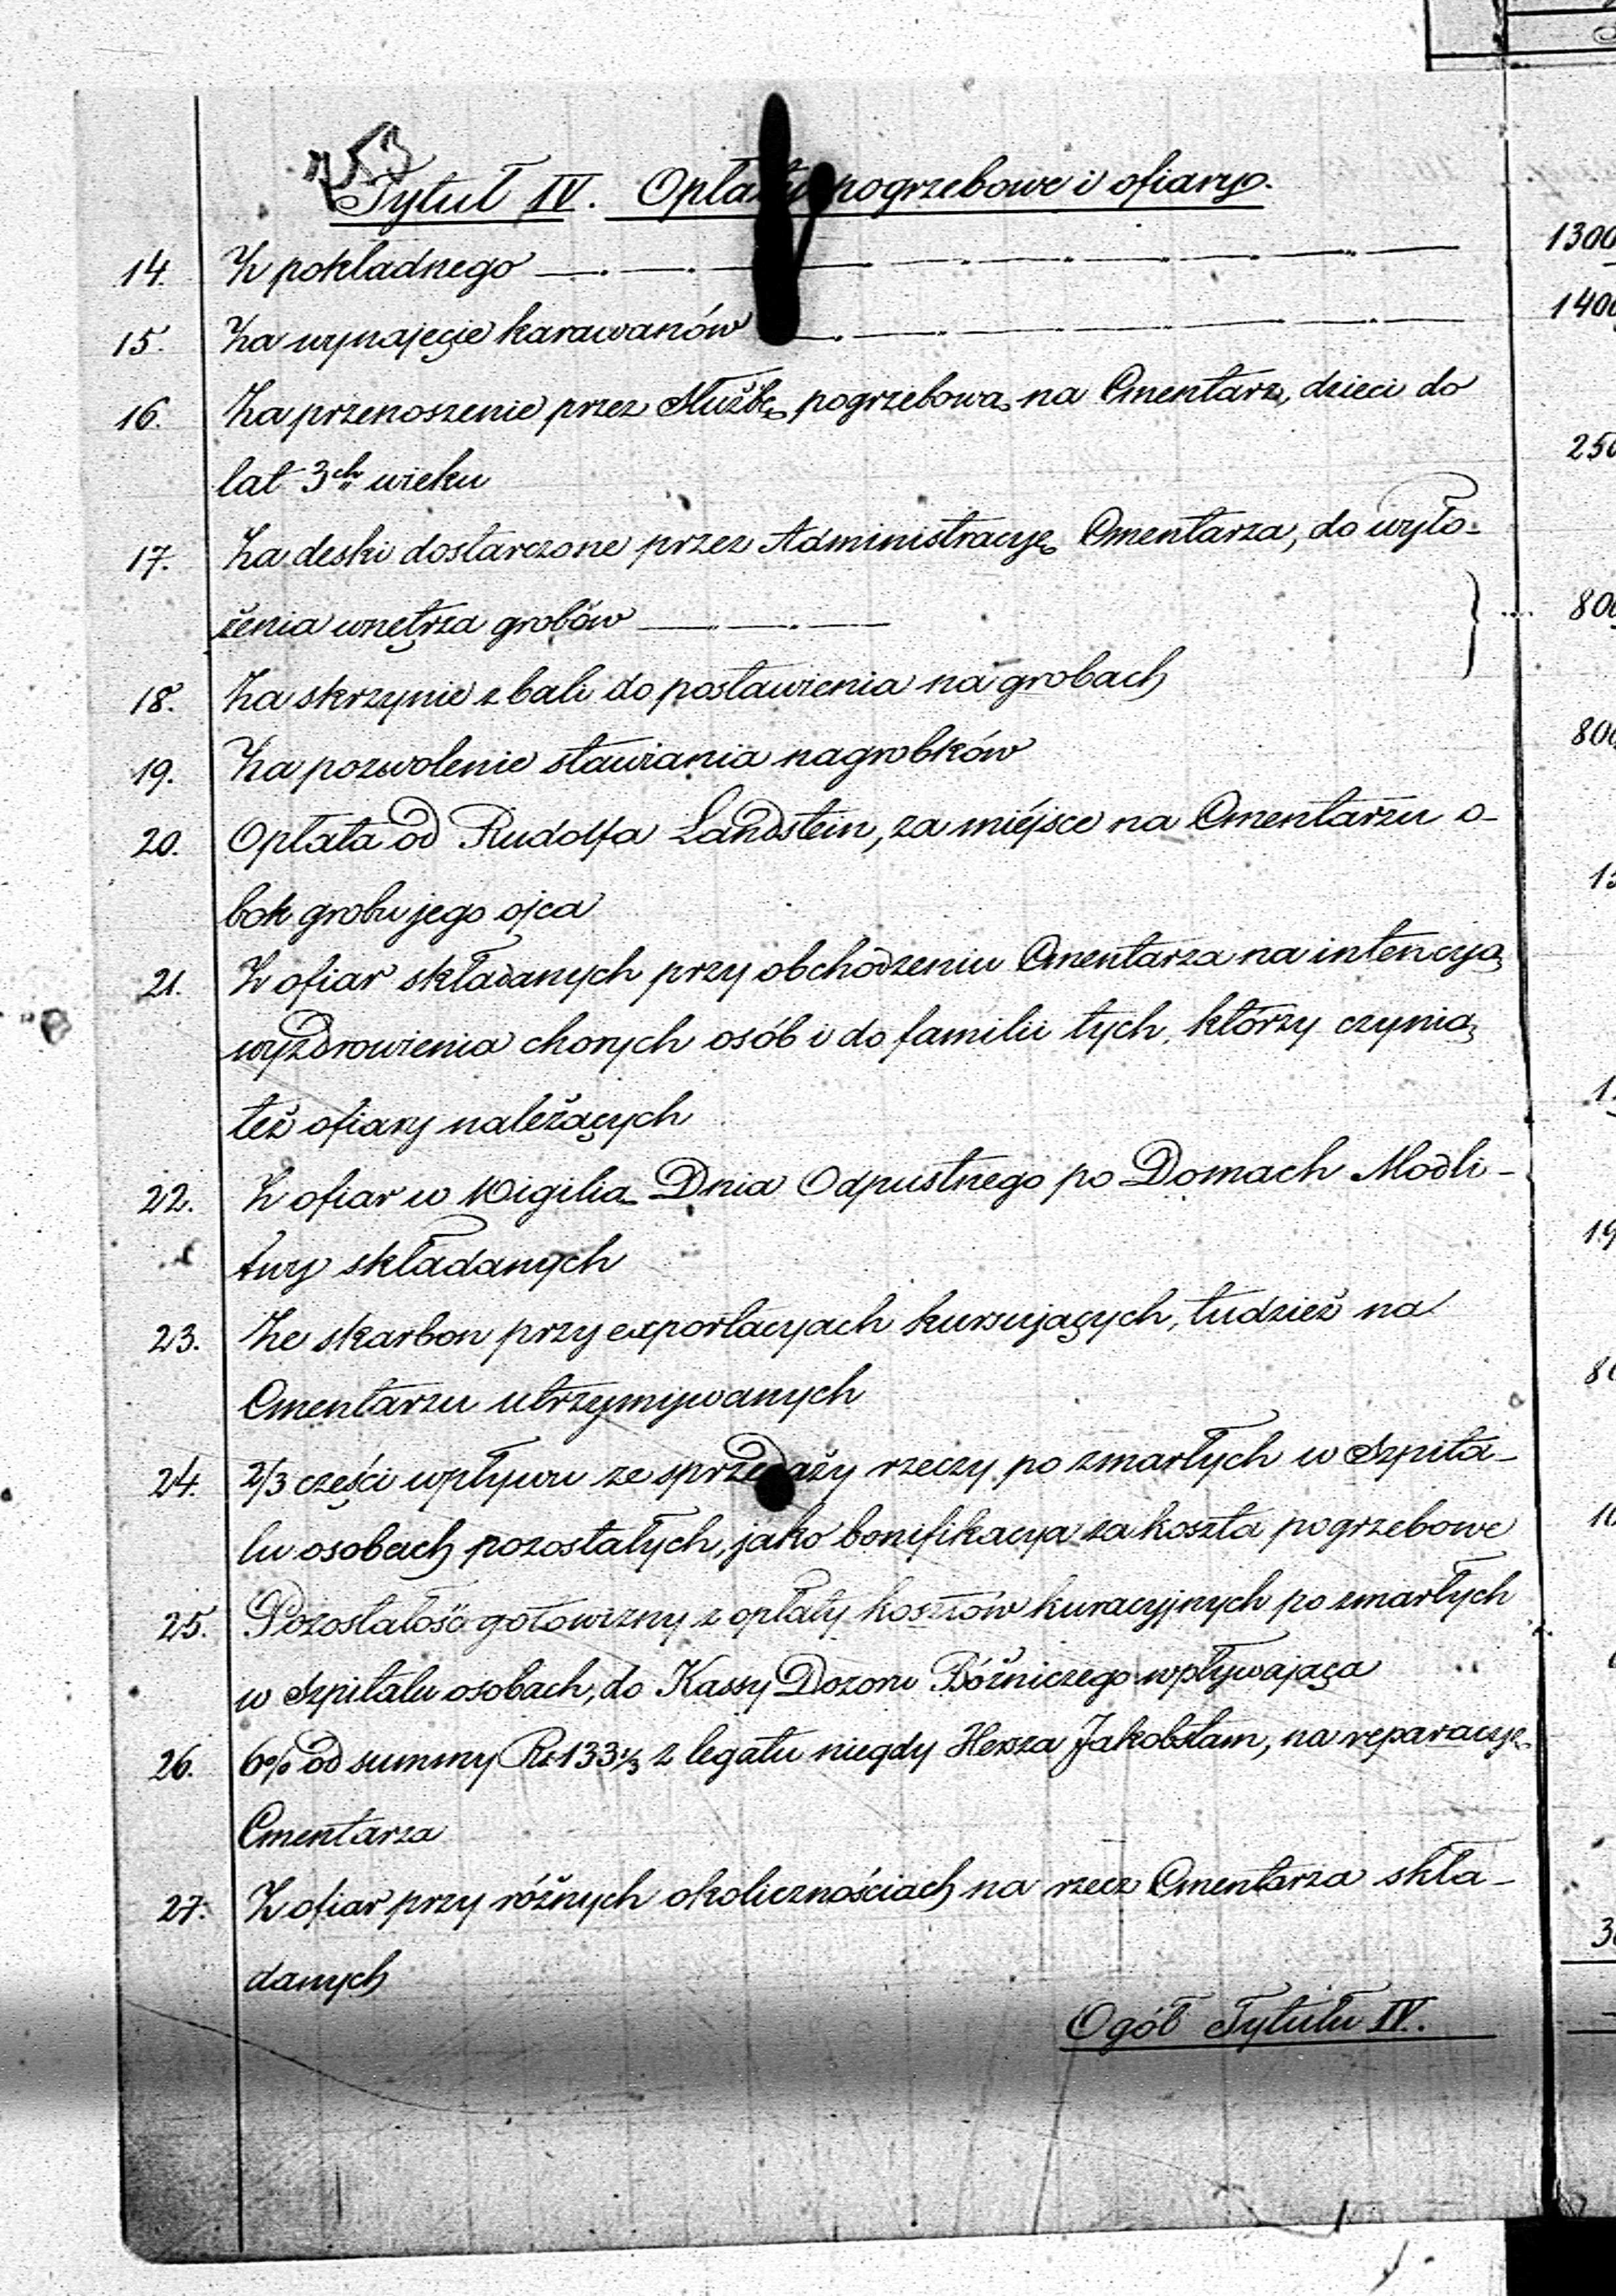 Tytuł IV. Opłaty pogrzebowe i ofiary.
14. Z pokładnego 1300
15. Za wynajęcie karawanów 1400
16. Za przenoszenie przez Służbę pogrzebową na Cmentarz, dzieci do
lat 3ch wieku 250
17. Za deski dostarczone przez Administracyę Cmentarza, do wyło-
żenia wnętrza grobów 800
18. Za skrzynie z bali do postawienia na grobach
19. Za pozwolenie stawiania nagrobków 800
20. Opłata od Rudolfa Landstein, za miéjsce na Cmentarzu o-
bok grobu jego ojca
21. Z ofiar składanych przy obchodzeniu Cmentarza na intencyą
wyzdrowienia chorych osób i do familii tych, którzy czynią
też ofiary należących
22. Z ofiar w Wigilią Dnia Odpustnego po Domach Modli-
twy składanych
23. Ze skarbon przy exportacyach kursujących, tudzież na
Cmentarzu utrzymywanych
24. 2/3 części wpływu ze sprzedaży rzeczy po zmarłych w Szpita-
lu osobach pozostałych, jako bonifikacya za koszta pogrzebowe
25. Pozostałość gotowizny z opłaty kosztów kuracyjnych po zmarłych
w Szpitalu osobach, do Kassy Dozoru Bóżniczego wpływająca
26. 6% od summy Rs 133 1/3 z legatu niegdy Hersza Jakobstam, na reparacyę
Cmentarza
27. Z ofiar przy różnych okolicznościach na rzecz Cmentarza skła-
danych
Ogół Tytułu IV.